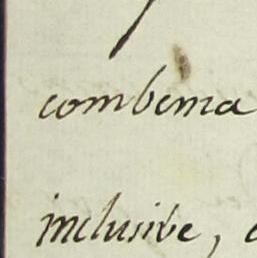 combema
inclusive,